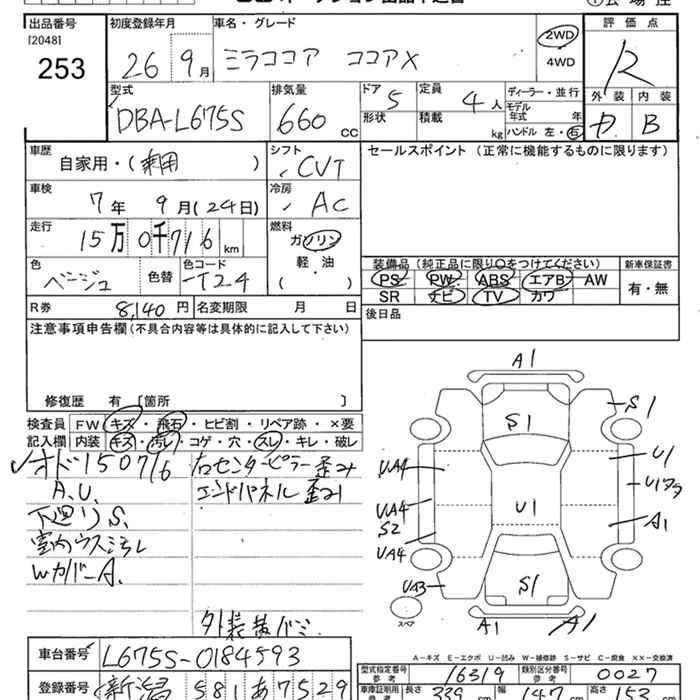 出品番号 初度登録年月 車名・グレード 評価点
[2048]
253 26 9月 ミラココア ココアX 2WD 4WD R
型式 排気量 ドア 定員 ディーラー・並行 外装 内装
DBA-L675S 660 cc 5 4人 モデル年式 年 B
形状 積載 kg ハンドル 左・右
車歴 シフト セールスポイント (正常に機能するものに限ります)
自家用・( ) CVT
車検 冷房
7年 9月(24日) AC
走行 燃料
15万0千716km ガソリン
軽・油
( )
装備品 (純正品に限り○をつけてください) 新車保証書
色 色替 色コード PS PW ABS エアB AW 有・無
ベージュ T24 SR ナビ TV カワ
R券 8,140円 名変期限 月 日 後日品
注意事項申告欄(不具合内容等は具体的に記入して下さい)
修復歴 有 [箇所 ]
検査員 FW キズ・飛石・ヒビ割・リペア跡・×要
記入欄 内装 キズ・汚レ・コゲ・穴・スレ・キレ・破レ
オド150716 右センターピラー歪み
A.U. エンドパネル歪み
下廻りS.
室内ウスヨゴレ
WカバーA.
A1
S1 S1
UA4 U1
UA4 S2 U1 A1
UA4
UA3 S1
スペア A1 A1
A-キズ E-エクボ U-凹み W-補修跡 S-サビ C-腐食 XX-交換済
車台番号 L675S-0184593 型式指定番号 参考 16319 類別区分番号 参考 0027
登録番号 新潟 581 あ7529 車庫証明用 長さ 339 cm 幅 147 cm 高さ 153